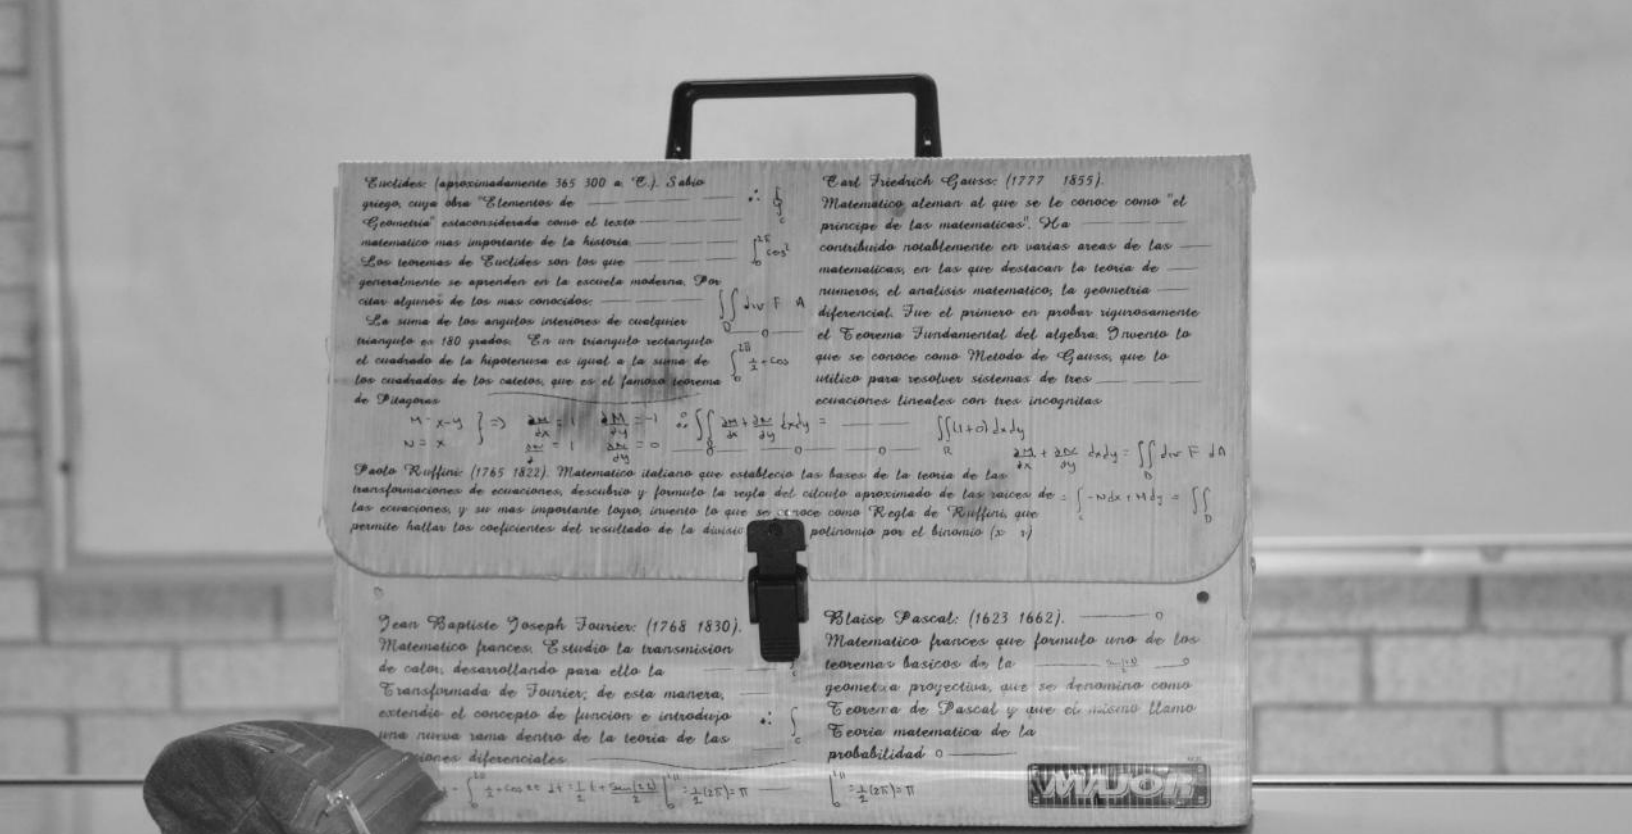 Euclides: (aproximadamente 365 300 a. C.). Sabio
griego, cuya obra "Elementos de
Geometria" estaconsiderada como el texto
matematico mas importante de la historia.
Los teoremas de Euclides son los que
generalmente se aprenden en la escuela moderna. Por
citar algunos de los mas conocidos:
La suma de los angulos interiores de cualquier
triangulo es 180 grados. En un triangulo rectangulo
el cuadrado de la hipotenusa es igual a la suma de
los cuadrados de los catetos, que es el famoso teorema
de Pitagoras
∴ ∮c
∫₀^2π cos²
∬D div F A
∫₀^2π 1/2 + cos
Carl Friedrich Gauss: (1777 1855).
Matematico aleman al que se le conoce como "el
principe de las matematicas". Ha
contribuido notablemente en varias areas de las
matematicas, en las que destacan la teoria de
numeros, el analisis matematico, la geometria
diferencial. Fue el primero en probar rigurosamente
el Teorema Fundamental del algebra. Invento lo
que se conoce como Metodo de Gauss, que lo
utilizo para resolver sistemas de tres
ecuaciones lineales con tres incognitas
M = x-y } => ∂M/∂x = 1 ∂M/∂y = -1 ∴ ∬ ∂M/∂x + ∂N/∂y dxdy =
N = x = 1 ∂N/∂y = 0
∬R (1+0) dxdy
∂M/∂x + ∂N/∂y dxdy = ∬D div F dA
Paolo Ruffini: (1765 1822). Matematico italiano que establecio las bases de la teoria de las
transformaciones de ecuaciones, descubrio y formulo la regla del calculo aproximado de las raices de
las ecuaciones, y su mas importante logro, invento lo que se conoce como Regla de Ruffini, que
permite hallar los coeficientes del resultado de la divisio polinomio por el binomio (x r)
= ∫c -Ndx + Mdy = ∬D
Jean Baptiste Joseph Fourier: (1768 1830).
Matematico frances. Estudio la transmision
de calor, desarrollando para ello la
Transformada de Fourier; de esta manera,
extendio el concepto de funcion e introdujo
una nueva rama dentro de la teoria de las
iones diferenciales
∴ ∫c
Blaise Pascal: (1623 1662).
Matematico frances que formulo uno de los
teoremas basicos de la
geometria proyectiva, que se denomino como
Teorema de Pascal y que el mismo llamo
Teoria matematica de la
probabilidad
dt = 1/2 t + Sen(2t)/2 | = 1/2 (2π) = π
| = 1/2 (2π) = π
MAJOR